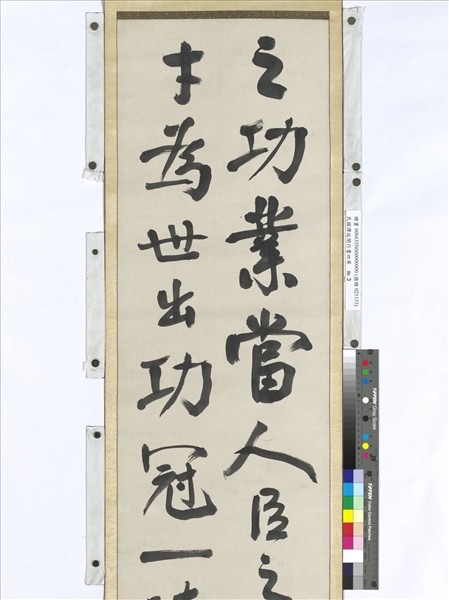 之功業當人臣之
才為世出功冠一時
TIFFEN Gray Scale
TIFFEN Color Control Patches